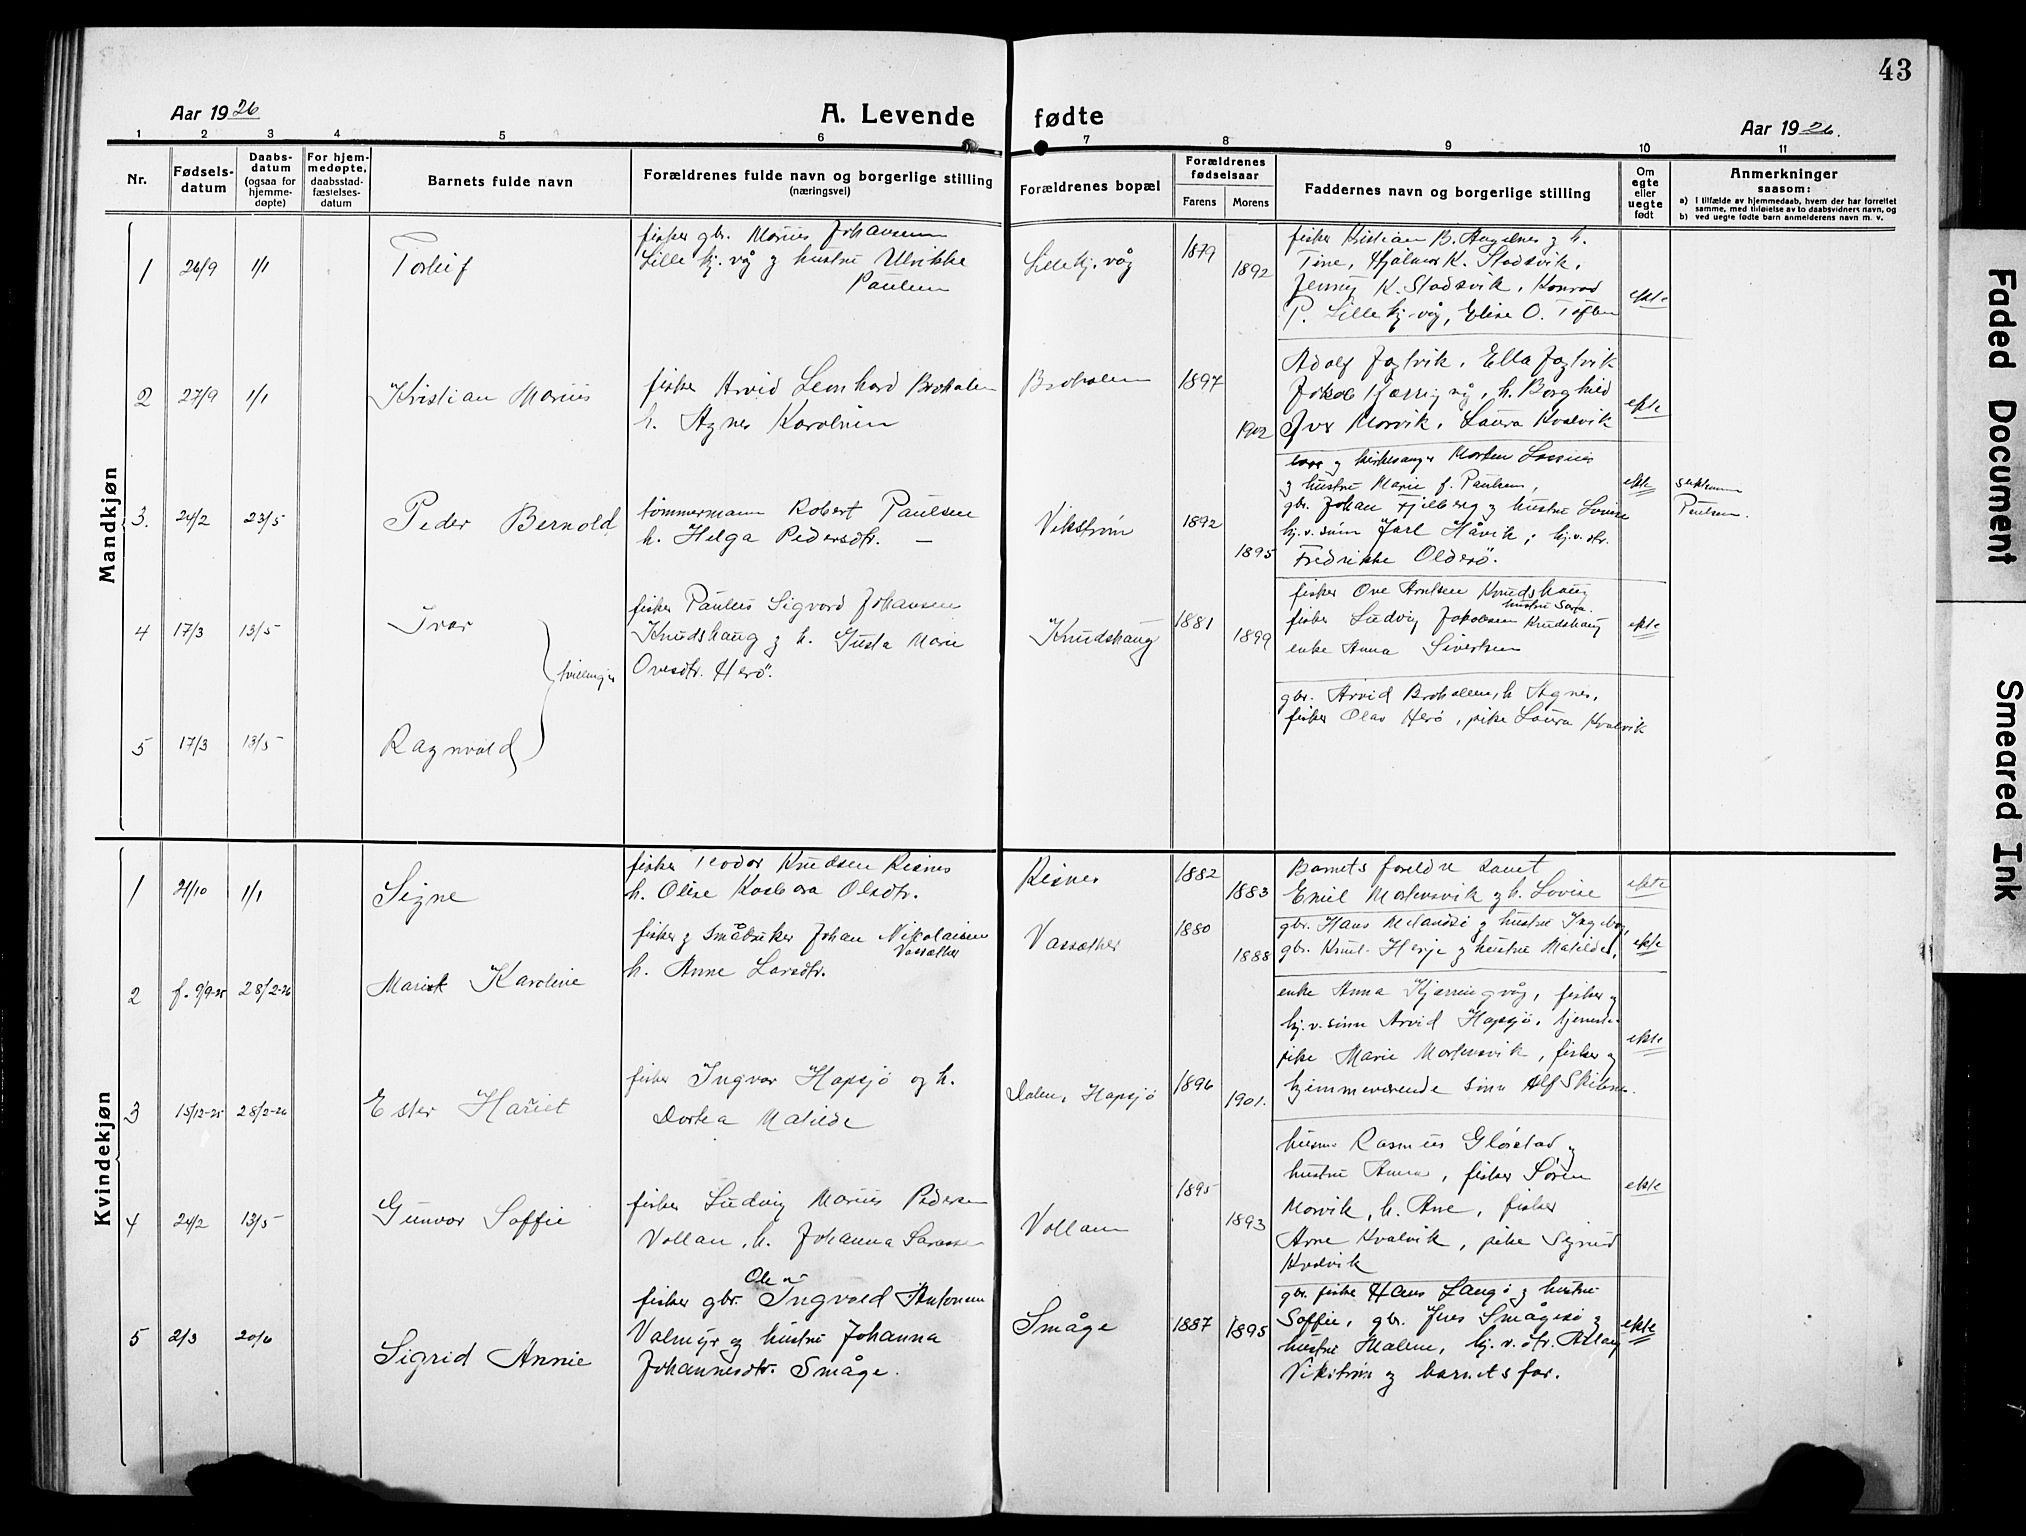 43
Aar 1926
A. Levende fødte
Aar 1926.
1 2 3 4 5 6 7 8 9 10 11
Nr.
Fødsels-
datum
Daabs-
datum
(ogsaa for
hjemme-
døpte)
For hjem-
medøpte,
daabsstad-
fæstelses-
datum
Barnets fulde navn
Forældrenes fulde navn og borgerlige stilling
(næringsvei)
Forældrenes bopæl
Forældrenes
fødselsaar
Farens Morens
Faddernes navn og borgerlige stilling
Om
egte
eller
uegte
født
Anmerkninger
saasom:
a) I tilfælde av hjemmedaab, hvem der har forrettet
samme, med tilføielse av to daabsvidners navn, og
b) ved uegte fødte barn anmelderens navn m. v.
Mandkjøn
1 26/9 1/1 Torleif
fisker gbr. Marius Johansen
Lillekj.våg og hustru Ulrikke
Paulsen
Lillekj.våg
1879
1892
fisker Kristian B. og h.
Tine, Hjalmar K. Stadsvik,
Jenny K. Stadsvik, Konrad
P. Lillekj.våg, Elise O. Toften
ekte
2 27/9 1/1 Kristian Marius
fisker Arvid Lernhard Broholen
h. Agnes Karoline
Broholen
1897
1902
Adolf Jøgtvik, Ella Jøgtvik
Jakob Kjørringvåg, h. Borghild
Morvik, Laura Kvalvik
ekte
3. 24/2 23/5 Peder Bernold
tømmermann Robert Paulsen
h. Helga Pedersdtr. —
Vikstrøm
1892
1895
og kirkesanger Morten
og hustru Marie f. Paulsen,
gbr. Johan Fjelberg og hustru Lovise
hj.v. sønn Jarl Håvik, hj.v. dtr.
Fredrikke Olderø.
ekte
Paulsen.
4 17/3 13/5 Ivar
tvillinger
fisker Paulus Sigvard Johansen
Knudshaug og h. Gusta Marie
Ovesdtr. Herø.
Knudshaug
1881
1899
fisker Ove Arntsen Knudshaug
hustru Sara.
fisker Ludvig Jakobsen Knudshaug
enke Anna Sivertsen
ekte
5 17/3 13/5 Ragnvald
gbr. Arvid Broholen, h Agnes,
fisker Olav Herø, pike Laura Kvalvik
Kvindekjøn
1 21/10 1/1 Signe
fisker Teodor Knudsen Risnes
h. Olise Kasbara Olsdtr.
Risnes
1882
1883
Barnets foreldre samt
Emil Mortensvik og h. Lovise
ekte
2 f. 9/9-25 28/2-26 Marie Karoline
fisker og småbruker Johan Nikolaisen
Vassæther
h. Anne Larsdtr.
Vassæther
1880
1888
gbr. Hans Melandsø og hustru Ingeborg,
gbr. Knut Herje og hustru Matilde,
ekte
3 15/12-25 28/2-26 Ester Hariet
fisker Ingvar Hapsjø og h.
Dortea Matilde
Dalen, Hapsjø
1896
1901.
enke Anna Kjørringvåg, fisker og
hj.v. sønn Arvid Hapsjø, tjeneste-
pike Marie Mortensvik, fisker og
hjemmeværende sønn Alf
ekte
4 24/2 13/5 Gunvor Soffie
fisker Ludvig Marius Pedersen
Vollan, h. Johanna
Vollan
1895
1893
husm. Rasmus Gløstad og
hustru Anna, fisker Søren
Morvik, h. Ane, fisker
Arne Kvalvik, pike Sigrid
Kvalvik
ekte
5 2/3 20/6 Sigrid Annie
Ole
fisker gbr. Ingvald Antonsen
Valmyr og hustru Johanna
Johannesdtr. Småge.
Småge
1887 1895
gbr. fisker Hans Langø og hustru
Soffie, gbr. Jens Smågesø og
hustru Malene, hj.v. dtr. Aslaug
Vikstrøm og barnets far.
ekte
Faded Document
Smeared Ink